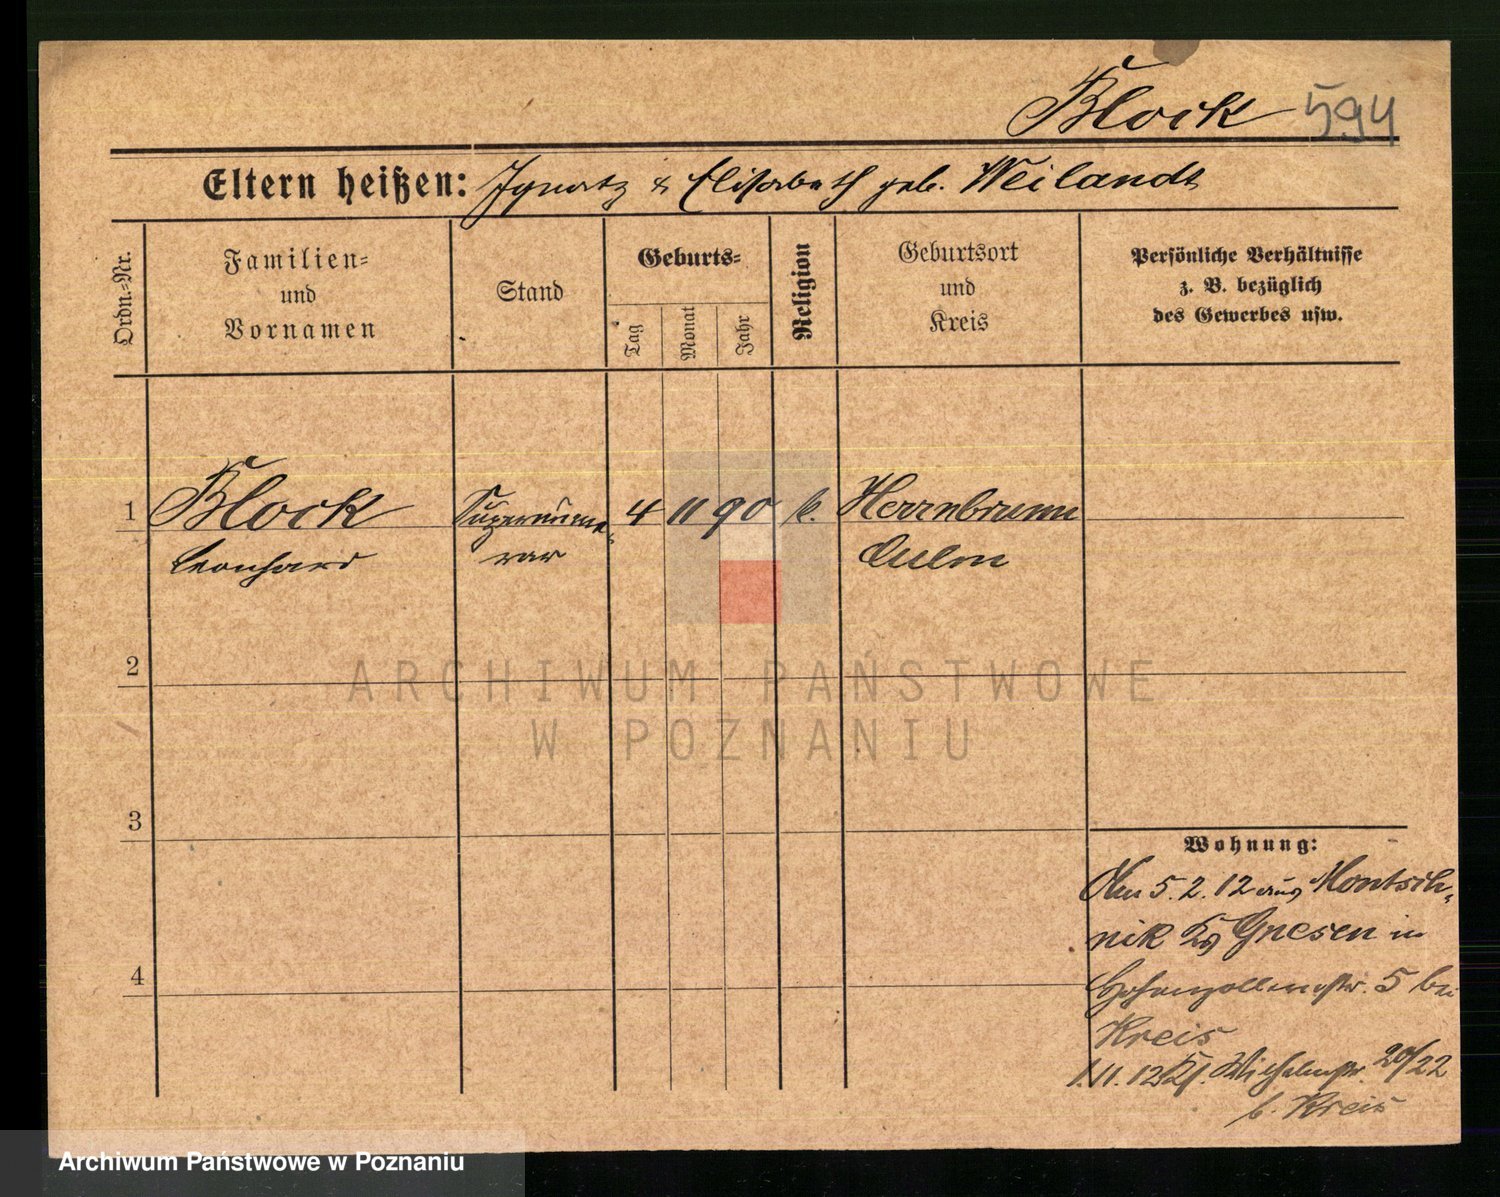 Block 594
Eltern heißen: Ignatz & Elisabeth geb. Weilandt
Ordn.-Nr.
Familien-
und
Vornamen
Stand
Geburts-
Tag
Monat
Jahr
Religion
Geburtsort
und
Kreis
Persönliche Verhältnisse
z. B. bezüglich
des Gewerbes usw.
1 Block Supernume- 4 11 90 k. Herrnbrunn
Leonhard rar Culm
2
ARCHIWUM PAŃSTWOWE
W POZNANIU
3
Wohnung:
Am 5.2.12 aus Montsch-
nik Gnesen in
4
Hohenzollernstr. 5 bei
Kreis
1.11.12 Wilhelmstr. 20/22
b. Kreis
Archiwum Państwowe w Poznaniu